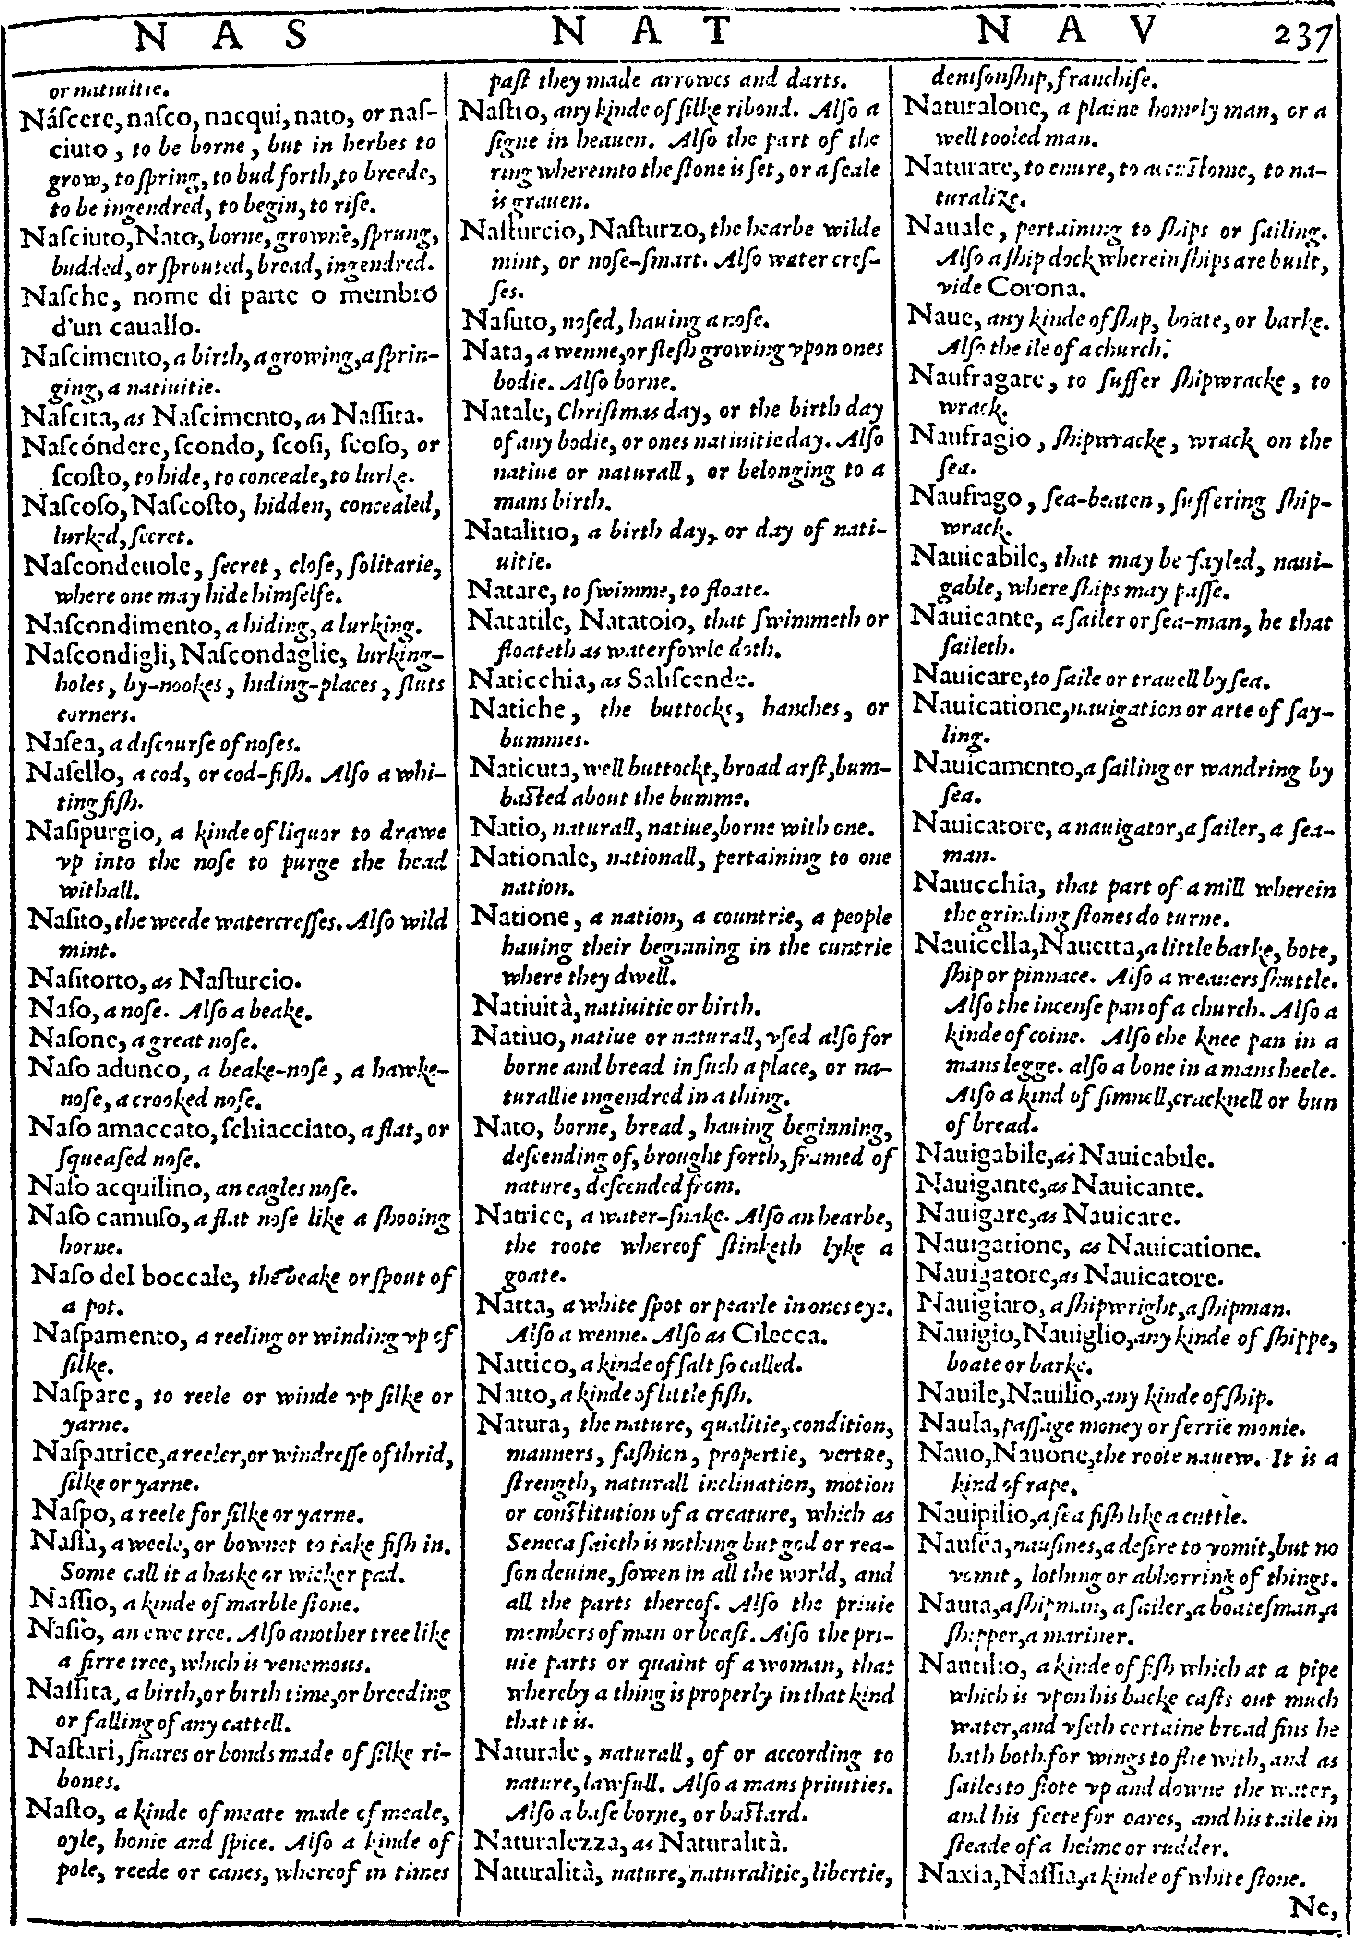 NAS NAT NAV 237
or natiuitie.
Náſcere, naſco, nacqui, nato, or naſ-
ciuto, to be borne, but in herbes to
grow, to ſpring, to bud forth, to breede,
to be ingendred, to begin, to riſe.
Naſciuto, Nato, borne, growne, ſprung,
budded, or ſprouted, bread, ingendred.
Naſche, nome di parte o membro
d'un cauallo.
Naſcimento, a birth, a growing, a ſprin-
ging, a natiuitie.
Naſcita, as Naſcimento, as Naſſita.
Naſcóndere, ſcondo, ſcoſi, ſcoſo, or
ſcoſto, to hide, to conceale, to lurke.
Naſcoſo, Naſcoſto, hidden, concealed,
lurked, ſecret.
Naſcondeuole, ſecret, cloſe, ſolitarie,
where one may hide himſelfe.
Naſcondimento, a hiding, a lurking.
Naſcondigli, Naſcondaglie, lurking-
holes, by-nookes, hiding-places, ſluts
corners.
Naſea, a diſcourſe of noſes.
Naſello, a cod, or cod-fiſh. Alſo a whi-
ting fiſh.
Naſipurgio, a kinde of liquor to drawe
vp into the noſe to purge the head
withall.
Naſito, the weede watercreſſes. Alſo wild
mint.
Naſitorto, as Naſturcio.
Naſo, a noſe. Alſo a beake.
Naſone, a great noſe.
Naſo adunco, a beake-noſe, a hawke-
noſe, a crooked noſe.
Naſo amaccato, ſchiacciato, a flat, or
ſqueaſed noſe.
Naſo acquilino, an eagles noſe.
Naſo camuſo, a flat noſe like a ſhooing
horne.
Naſo del boccale, the beake or ſpout of
a pot.
Naſpamento, a reeling or winding vp of
ſilke.
Naſpare, to reele or winde vp ſilke or
yarne.
Naſpatrice, a reeler, or windreſſe of thrid,
ſilke or yarne.
Naſpo, a reele for ſilke or yarne.
Naſſa, a weele, or bownet to take fiſh in.
Some call it a haske or wicker pad.
Naſſio, a kinde of marble ſtone.
Naſſo, an ewe tree. Alſo another tree like
a firre tree, which is venemous.
Naſſita, a birth, or birth time, or breeding
or falling of any cattell.
Naſtari, ſnares or bonds made of ſilke ri-
bones.
Naſto, a kinde of meate made of meale,
oyle, honie and ſpice. Alſo a kinde of
pole, reede or canes, whereof in times
paſt they made arrowes and darts.
Naſtro, any kinde of ſilke ribond. Alſo a
ſigne in heauen. Alſo the part of the
ring whereinto the ſtone is ſet, or a ſeale
is grauen.
Naſturcio, Naſturzo, the hearbe wilde
mint, or noſe-ſmart. Alſo water creſ-
ſes.
Naſuto, noſed, hauing a noſe.
Nata, a wenne, or fleſh growing vpon ones
bodie. Alſo borne.
Natale, Chriſtmas day, or the birth day
of any bodie, or ones natiuitie day. Alſo
natiue or naturall, or belonging to a
mans birth.
Natalitio, a birth day, or day of nati-
uitie.
Natare, to ſwimme, to floate.
Natatile, Natatoio, that ſwimmeth or
floateth as waterfowle doth.
Naticchia, as Saliſcende.
Natiche, the buttocks, hanches, or
bummes.
Naticuta, well buttockt, broad arſt, bum-
baſted about the bumme.
Natio, naturall, natiue, borne with one.
Nationale, nationall, pertaining to one
nation.
Natione, a nation, a countrie, a people
hauing their beginning in the cuntrie
where they dwell.
Natiuità, natiuitie or birth.
Natiuo, natiue or naturall, vſed alſo for
borne and bread in ſuch a place, or na-
turallie ingendred in a thing.
Nato, borne, bread, hauing beginning,
deſcending of, brought forth, framed of
nature, deſcended from.
Natrice, a water-ſnake. Alſo an hearbe,
the roote whereof ſtinketh lyke a
goate.
Natta, a white ſpot or pearle in ones eye.
Alſo a wenne. Alſo as Cilecca.
Nattico, a kinde of ſalt ſo called.
Natto, a kinde of little fiſh.
Natura, the nature, qualitie, condition,
manners, faſhion, propertie, vertue,
ſtrength, naturall inclination, motion
or conſtitution of a creature, which as
Seneca ſaieth is nothing but god or rea-
ſon deuine, ſowen in all the world, and
all the parts thereof. Alſo the priuie
members of man or beaſt. Alſo the pri-
uie parts or quaint of a woman, that
whereby a thing is properly in that kind
that it is.
Naturale, naturall, of or according to
nature, lawfull. Alſo a mans priuities.
Alſo a baſe borne, or baſtard.
Naturalezza, as Naturalità.
Naturalità, nature, naturalitie, libertie,
deniſonſhip, franchiſe.
Naturalone, a plaine homely man, or a
well tooled man.
Naturare, to enure, to accuſtome, to na-
turalize.
Nauale, pertaining to ſhips or ſailing.
Alſo a ſhip dock wherein ſhips are built,
vide Corona.
Naue, any kinde of ſhip, boate, or barke.
Alſo the ile of a church.
Naufragare, to ſuffer ſhipwracke, to
wrack.
Naufragio, ſhipwracke, wrack on the
ſea.
Naufrago, ſea-beaten, ſuffering ſhip-
wrack.
Nauicabile, that may be ſayled, naui-
gable, where ſhips may paſſe.
Nauicante, a ſailer or ſea-man, he that
ſaileth.
Nauicare, to ſaile or trauell by ſea.
Nauicatione, nauigation or arte of ſay-
ling.
Nauicamento, a ſailing or wandring by
ſea.
Nauicatore, a nauigator, a ſailer, a ſea-
man.
Nauicchia, that part of a mill wherein
the grinding ſtones do turne.
Nauicella, Nauetta, a little barke, bote,
ſhip or pinnace. Alſo a weauers ſhuttle.
Alſo the incenſe pan of a church. Alſo a
kinde of coine. Alſo the knee pan in a
mans legge. alſo a bone in a mans heele.
Alſo a kind of ſimnell, cracknell or bun
of bread.
Nauigabile, as Nauicabile.
Nauigante, as Nauicante.
Nauigare, as Nauicare.
Nauigatione, as Nauicatione.
Nauigatore, as Nauicatore.
Nauigiaro, a ſhipwright, a ſhipman.
Nauigio, Nauiglio, any kinde of ſhippe,
boate or barke.
Nauile, Nauilio, any kinde of ſhip.
Naula, paſſage money or ferrie monie.
Nauo, Nauone, the roote nauew. It is a
kind of rape.
Nauipilio, a ſea fiſh like a cuttle.
Nauſéa, nauſines, a deſire to vomit, but no
vomit, lothing or abhorring of things.
Nauta, a ſhipman, a ſailer, a boateſman, a
ſhipper, a mariner.
Nautilio, a kinde of fiſh which at a pipe
which is vpon his backe caſts out much
water, and vſeth certaine broad fins he
hath both for wings to flie with, and as
ſailes to flote vp and downe the water,
and his feete for oares, and his taile in
ſteade of a helme or rudder.
Naxia, Naſſia, a kinde of white ſtone.
Ne,